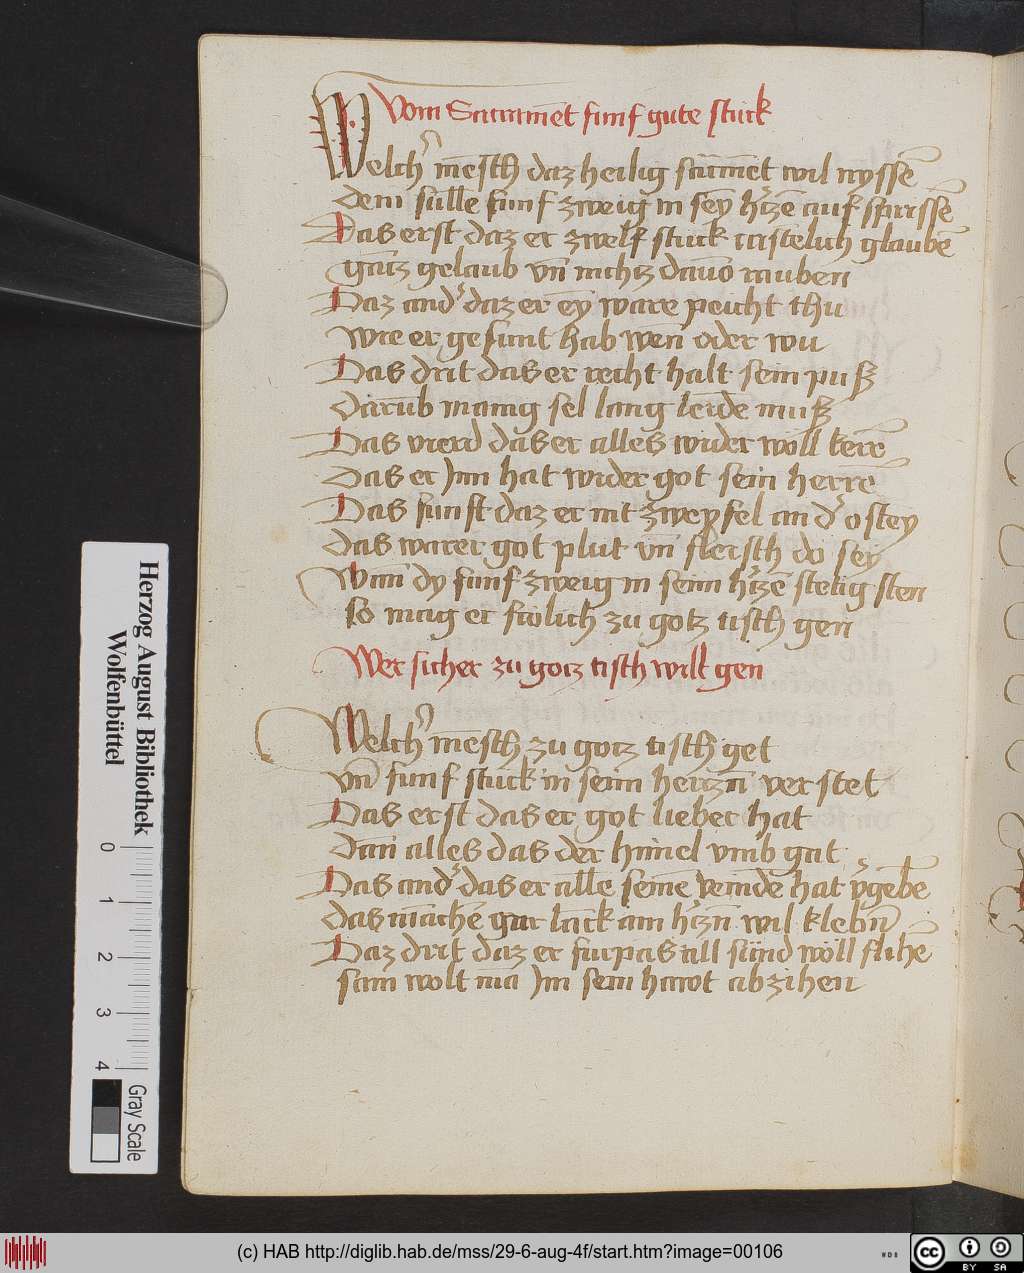 Vom Sacramēt funf gute stuck
Welch' mēsch daz heilig sacramēt wil nyssē
dem sulle funf zweig in seÿ h'zē auf sprissē
Das erst daz er zwelf stuck cristelich glaubē
gātz gelaub vn̄ nichtz dauō rauben
Daz and' daz er eÿ ware peicht thu
wie er gesunt hab wen̄ oder wu
Das drit das er recht halt sein puß
darūb manig sel lang leide muß
Das vierd das er alles wider woll kerē
Das er Jm hat wider got sein herrē
Das funft daz er nit zweyfel an d' ostey
das warer got plut vn̄ fleisch do sey
Wan̄ dy funf zweig in seim h'zē stetig sten
so mag er frölich zu gotz tisch gen
Wer sicher zu gotz tisch will gen
Welch' mēsch zu gotz tisch get
vn̄ funf stuck in seim hertzn̄ verstet
Das erst das er got lieber hat
dan̄ alles das der himel vmb gat
Das and' das er alle seine veinde hat v'gebē
das nīachē gar lack am h'zn̄ wil klebn̄
Daz drit daz er furpas all sünd wöll flihē
sam wolt mā Jm sein hawt abzihen
Herzog August Bibliothek
Wolfenbüttel
0
1
2
3
4
Gray Scale
(c) HAB http://diglib.hab.de/mss/29-6-aug-4f/start.htm?image=00106
WDB
cc
BY SA